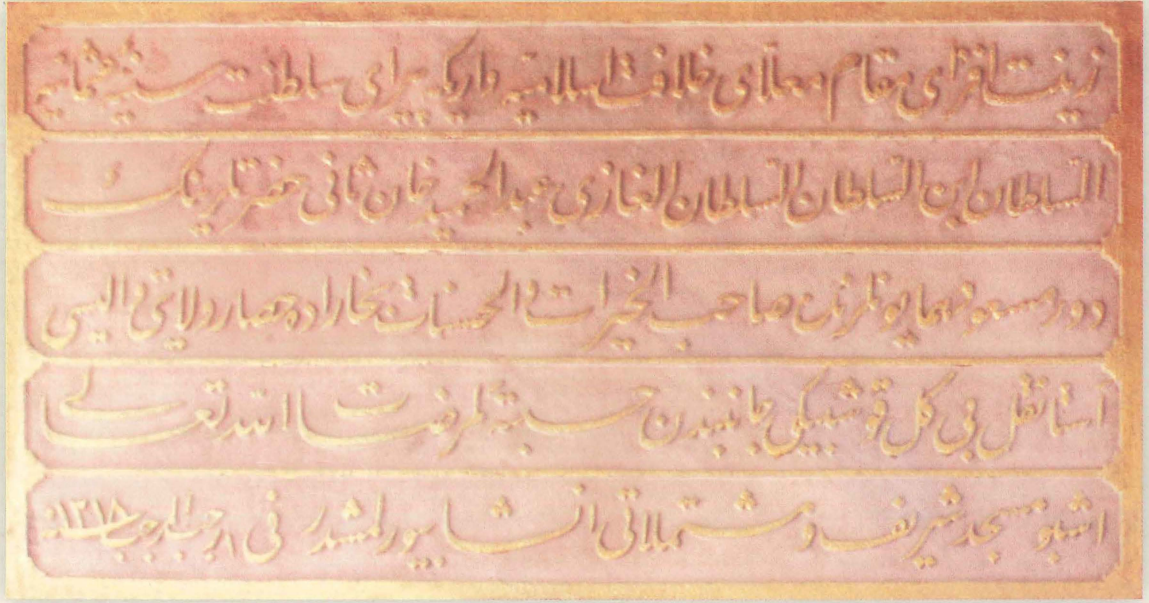 زينت افزاى مقام معلاى خلافت اسلاميه واريكه پيراى سلطنت سنيه عثمانيه
السلطان ابن السلطان السلطان الغازى عبد الحميد خان ثانى حضرتلرينك
دور مسعود همايونلرنده صاحب الخيرات والحسنات بخاراده حصار ولايتى واليسى
آستانقل بى كل قوشبيكى جانبندن حسبة لمرضات الله تعالى
اشبو مسجد شريف ومشتملاتى انشا بيورلمشدر فى ٨ رجب المرجب سنه ١٣١٨